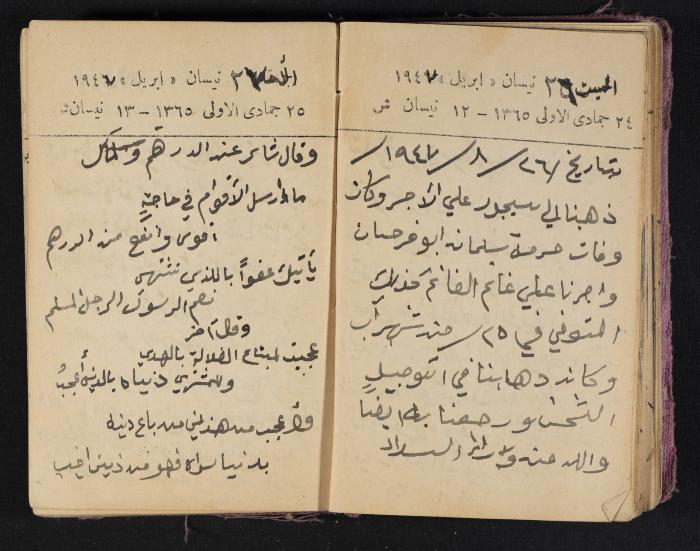 السبت ٢٦ نيسان «ابريل» ١٩٤٧
٢٤ جمادى الاولى ١٣٦٥ – ١٢ نيسان ش
بتاريخ ٢٦/ ٨/ ١٩٤٧/
ذهبنا الى للأجر وكان
وفات حرمة سليمان ابو فرحان
واجرنا علي غانم الغانم كذلك
المتوفي في ٢٥/ من شهر آب
وكان ذهابنا في
ورجعنا به ايضاً
والله
الأحد ٢٧ نيسان «ابريل» ١٩٤٧
٢٥ جمادى الاولى ١٣٦٥ – ١٣ نيسان ش
وقال شاعر عند الدرهم
ما ارسل الأقوام في حاجةٍ
أقوى وانفع من الدرهم
يأتيك عفواً بالذي تشتهي
نعم الرسول الرجل المسلم
وقال آخر
عجبت لمبتاع الضلالة بالهدي
وللمشتري دنياه بالدين أعجبُ
وأعجب من هذين من باع دينه
بدنيا سواه فهو من ذين اخيب